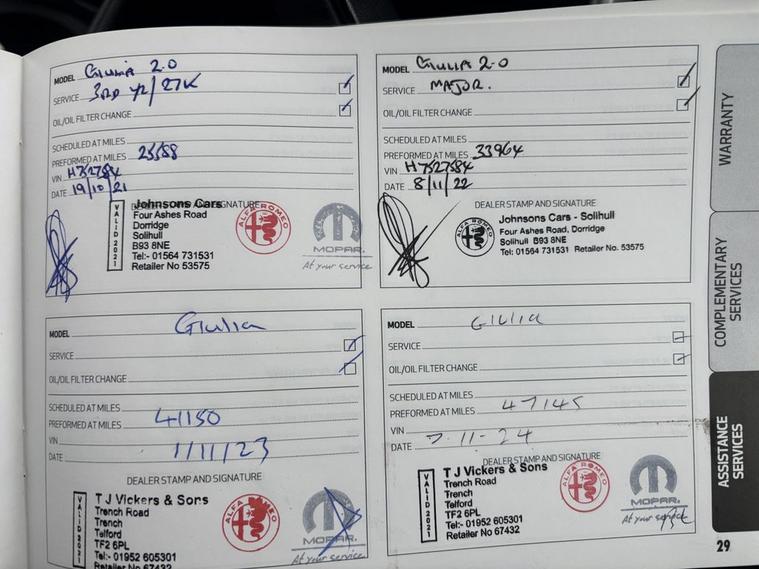 MODEL Giulia 2.0
SERVICE 3RD YR/27K
OIL/OIL FILTER CHANGE
SCHEDULED AT MILES
PREFORMED AT MILES 25588
VIN H7527584
DATE 19/10/21
DEALER STAMP AND SIGNATURE
VALID 2021
Johnsons Cars
Four Ashes Road
Dorridge
Solihull
B93 8NE
Tel:- 01564 731531
Retailer No 53575
ALFA ROMEO
MOPAR.
At your service
MODEL Giulia 2.0
SERVICE MAJOR.
OIL/OIL FILTER CHANGE
SCHEDULED AT MILES
PREFORMED AT MILES 33964
VIN H7527584
DATE 8/11/22
DEALER STAMP AND SIGNATURE
ALFA ROMEO
Johnsons Cars - Solihull
Four Ashes Road, Dorridge
Solihull B93 8NE
Tel: 01564 731531 Retailer No. 53575
MODEL Giulia
SERVICE
OIL/OIL FILTER CHANGE
SCHEDULED AT MILES
PREFORMED AT MILES 41150
VIN
DATE 1/11/23
DEALER STAMP AND SIGNATURE
VALID 2021
T J Vickers & Sons
Trench Road
Trench
Telford
TF2 6PL
Tel:- 01952 605301
Retailer No 67432
ALFA ROMEO
MOPAR.
At your service
MODEL Giulia
SERVICE
OIL/OIL FILTER CHANGE
SCHEDULED AT MILES
PREFORMED AT MILES 47145
VIN
DATE 7-11-24
DEALER STAMP AND SIGNATURE
VALID 2021
T J Vickers & Sons
Trench Road
Trench
Telford
TF2 6PL
Tel:- 01952 605301
Retailer No 67432
ALFA ROMEO
MOPAR.
At your service
WARRANTY
COMPLEMENTARY
SERVICES
ASSISTANCE
SERVICES
29